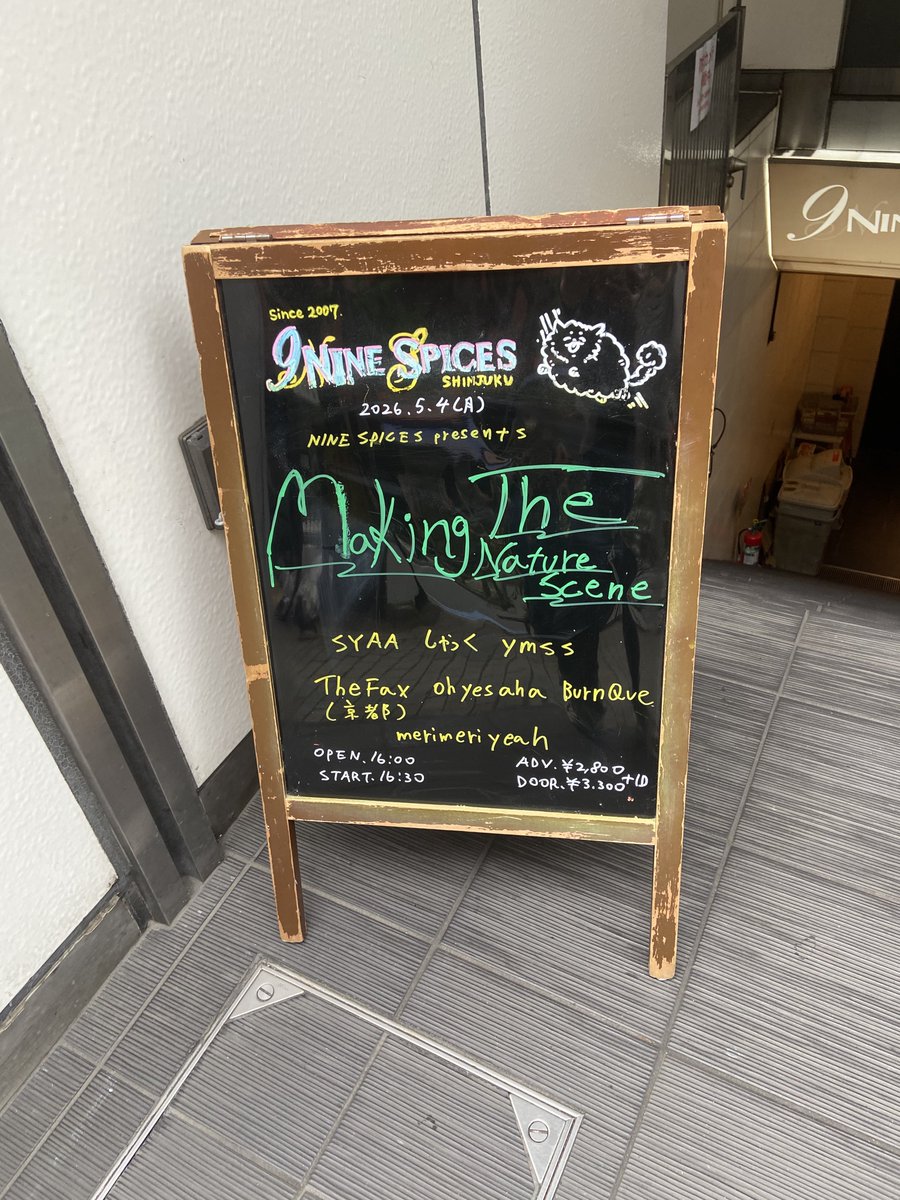 Since 2007.
9 NINE SPICES
SHINJUKU
2026.5.4(月)
NINE SPICES presents
Making The
Nature
Scene
SYAA しゃっく ymss
The Fax ohyesaha BurnQue
(京都)
merimeri yeah
OPEN.16:00
START.16:30
ADV.¥2,800
DOOR.¥3.300 +1D
9 NIN